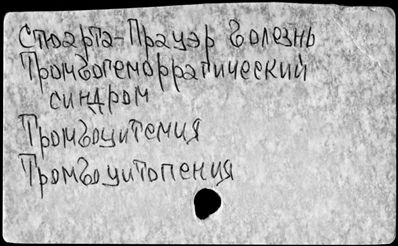 Стюарта-Прауэр болезнь
Тромбогеморрагический
синдром
Тромбоцитемия
Тромбоцитопения